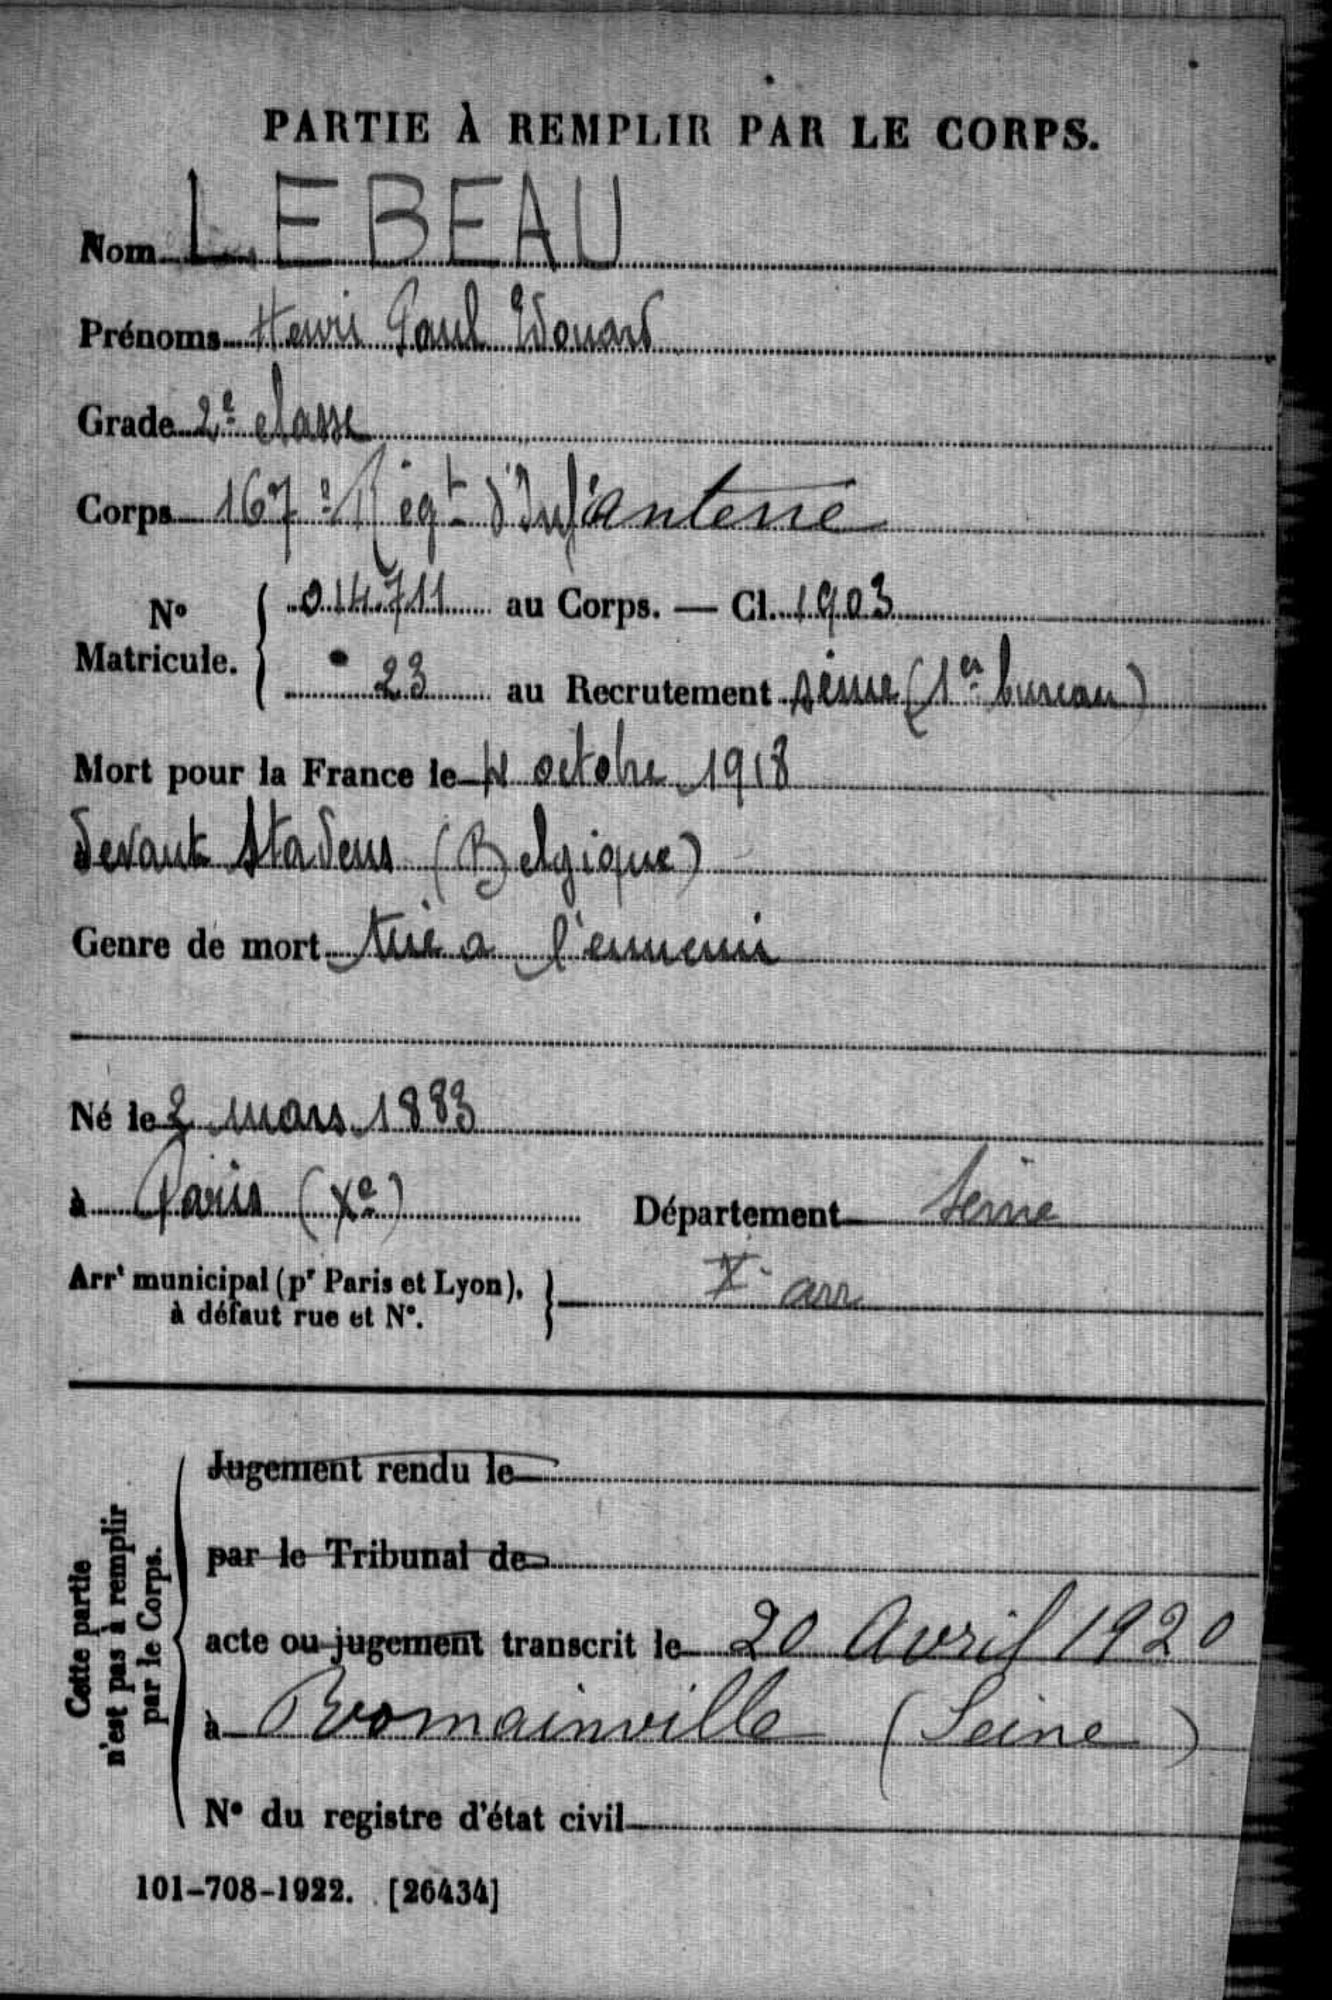 PARTIE À REMPLIR PAR LE CORPS.
Nom LEBEAU
Prénoms Henri Paul Edouard
Grade 2e classe
Corps 167e Régt d'Infanterie
No Matricule. { 014711 au Corps. — Cl. 1903
23 au Recrutement Seine (1er bureau)
Mort pour la France le 4 octobre 1918
devant Staden (Belgique)
Genre de mort tué a l'ennemi
Né le 2 mars 1883
à Paris (Xe) Département Seine
Arrt municipal (pr Paris et Lyon), à défaut rue et No. } X arr
Cette partie n'est pas à remplir par le Corps.
Jugement rendu le
par le Tribunal de
acte ou jugement transcrit le 20 Avril 1920
à Romainville (Seine)
No du registre d'état civil
101-708-1922. [26434]